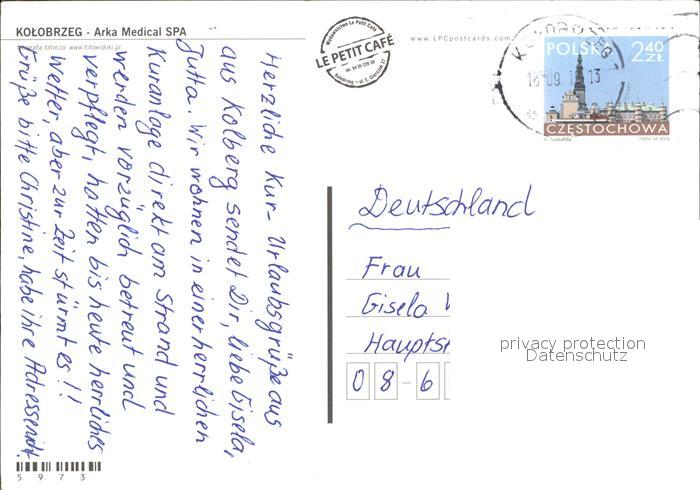 KOŁOBRZEG - Arka Medical SPA
fotografia lotnicza: www.fotowidoki.pl
Wydawnictwo Le Petit Café
LE PETIT CAFÉ
www.LPCpostcards.com
KOŁOBRZEG
POLSKA 2,40 ZŁ
CZĘSTOCHOWA
Herzliche Kur-Urlaubsgrüße aus
aus Kolberg sendet Dir, liebe Gisela,
Jutta. Wir wohnen in einer herrlichen
Kuranlage direkt am Strand und
werden vorzüglich betreut und
verpflegt, hatten bis heute herrliches
Wetter, aber zur Zeit stürmt es!!
Grüße bitte Christine, habe ihre Adresse nicht.
Deutschland
Frau
Gisela
Hauptst
08-6
privacy protection
Datenschutz
5973